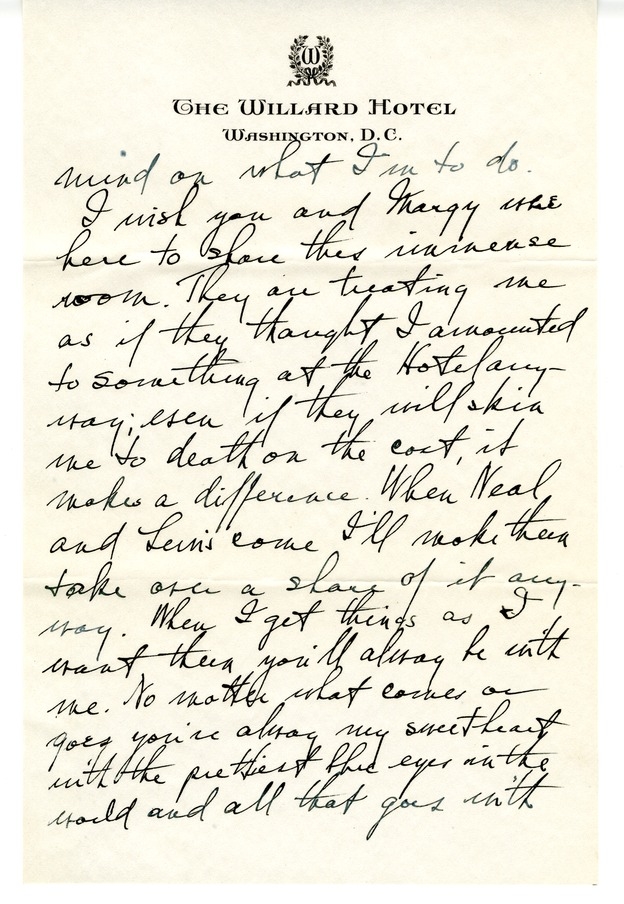 W
THE WILLARD HOTEL
WASHINGTON, D.C.
mind on what I'm to do.
I wish you and Margy were
here to share this immense
room. They are treating me
as if they thought I amounted
to something at the Hotel any-
way; even if they will skin
me to death on the cost, it
makes a difference. When Neal
and Lewis come I'll make them
take over a share of it any-
way. When I get things as I
want them you'll alway be with
me. No matter what comes or
goes you're alway my sweetheart
with the prettiest blue eyes in the
world and all that goes with